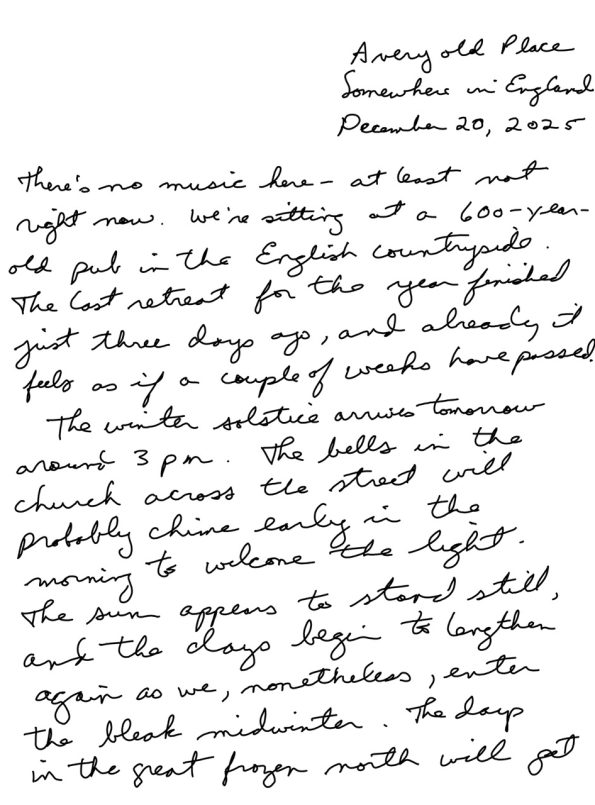 A very old Place
Somewhere in England
December 20, 2025
There's no music here – at least not
right now. We're sitting at a 600-year-
old pub in the English countryside.
The last retreat for the year finished
just three days ago, and already it
feels as if a couple of weeks have passed.
The winter solstice arrives tomorrow
around 3 pm. The bells in the
church across the street will
probably chime early in the
morning to welcome the light.
The sun appears to stand still,
and the days begin to lengthen
again as we, nonetheless, enter
the bleak midwinter. The days
in the great frozen north will get